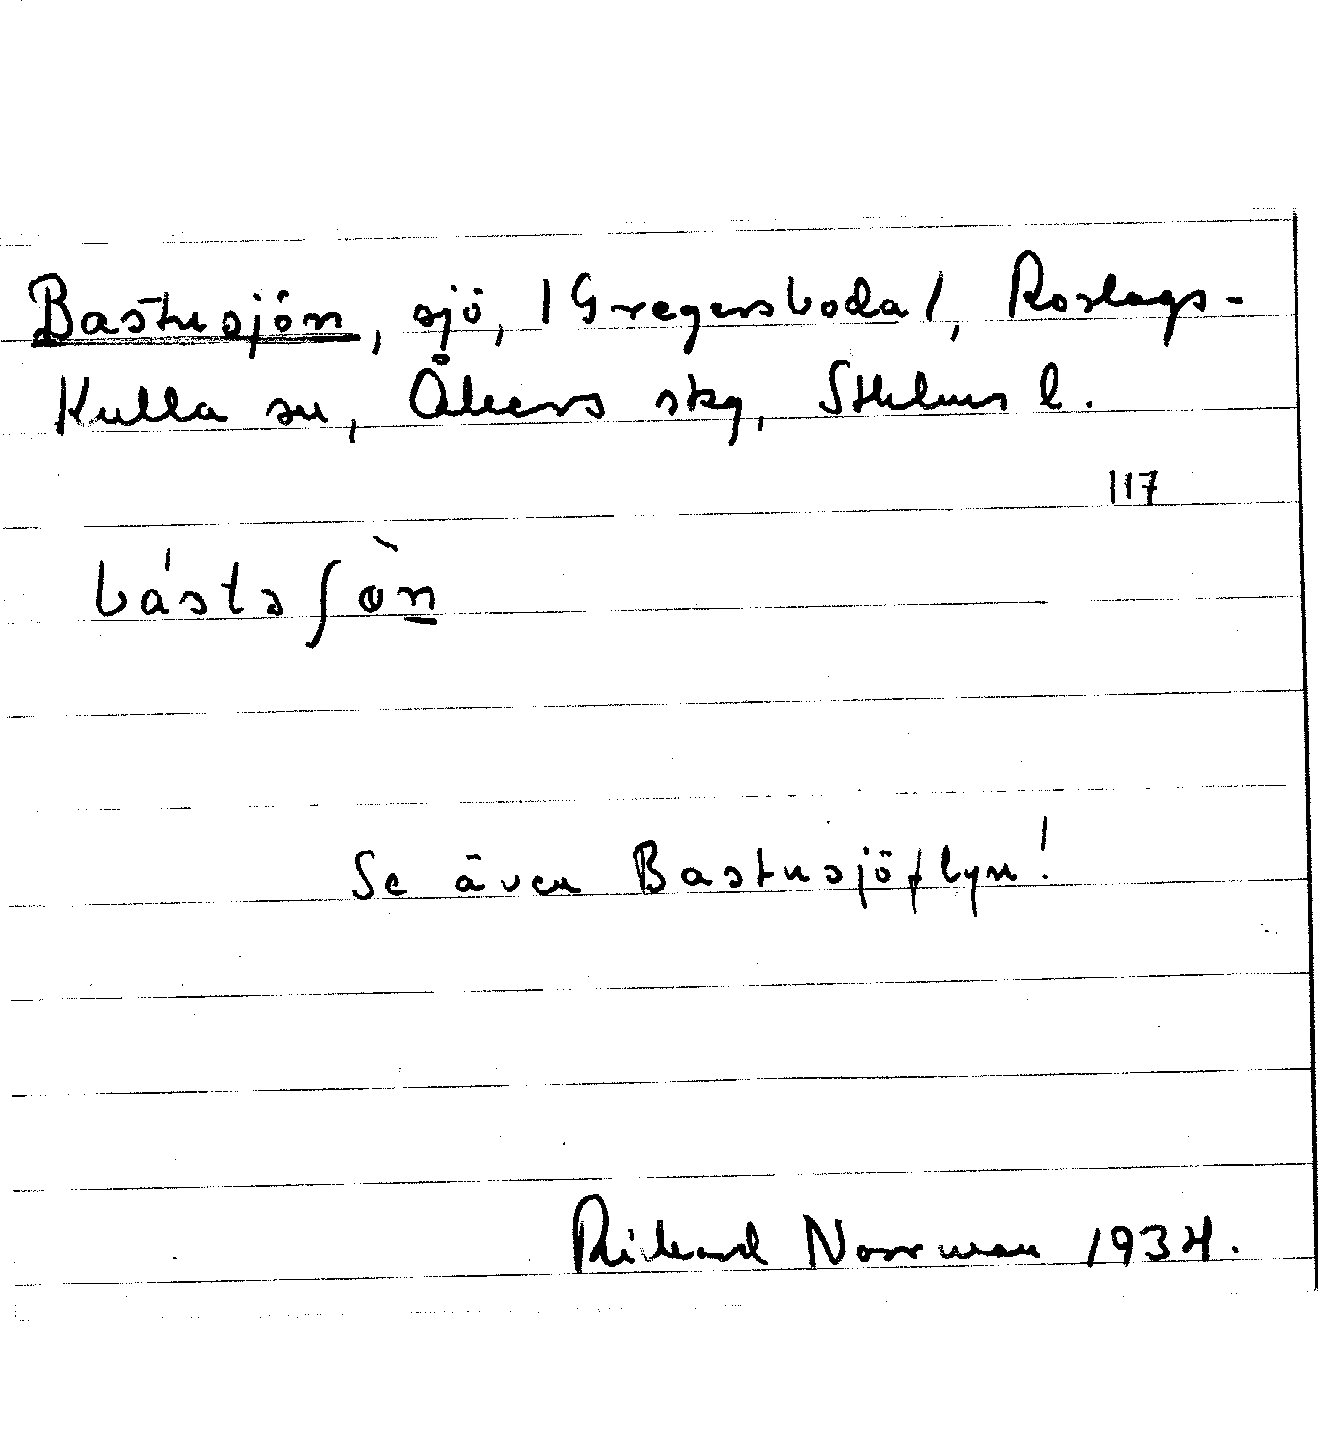 Bastusjön, sjö, /Gregersboda/, Roslags-
Kulla sn, Åkers skg, Sthlms l.
117
bástəʃø̀n
Se även Bastusjöflyn!
Rickard Norrman 1934.